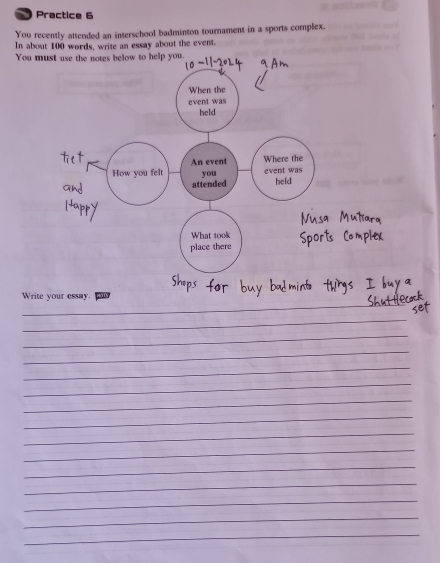 Practice 6
You recently attended an interschool badminton tournament in a sports complex.
In about 100 words, write an essay about the event.
You must use the notes below to help you.
10-11-2024 9 Am
When the
event was
held
tiet
and
Happy
How you felt
An event
you
attended
Where the
event was
held
Nusa Mutiara
Sports Complex
What took
place there
Shops for buy badminto things I buy a
Shuttlecock
set
Write your essay.